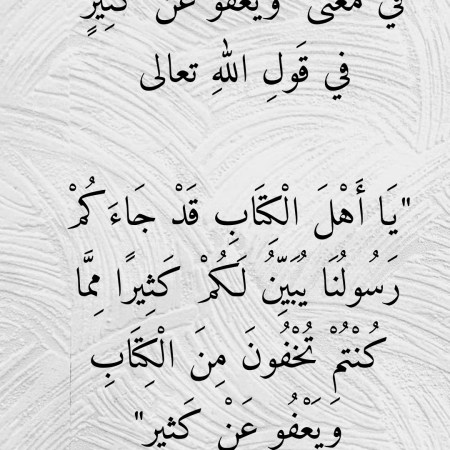 في معنى "ويعفو عن كثيرٍ
في قَولِ اللهِ تعالى
"يَا أَهْلَ الْكِتَابِ قَدْ جَاءَكُمْ
رَسُولُنَا يُبَيِّنُ لَكُمْ كَثِيرًا مِمَّا
كُنْتُمْ تُخْفُونَ مِنَ الْكِتَابِ
وَيَعْفُو عَنْ كَثيرٍ"